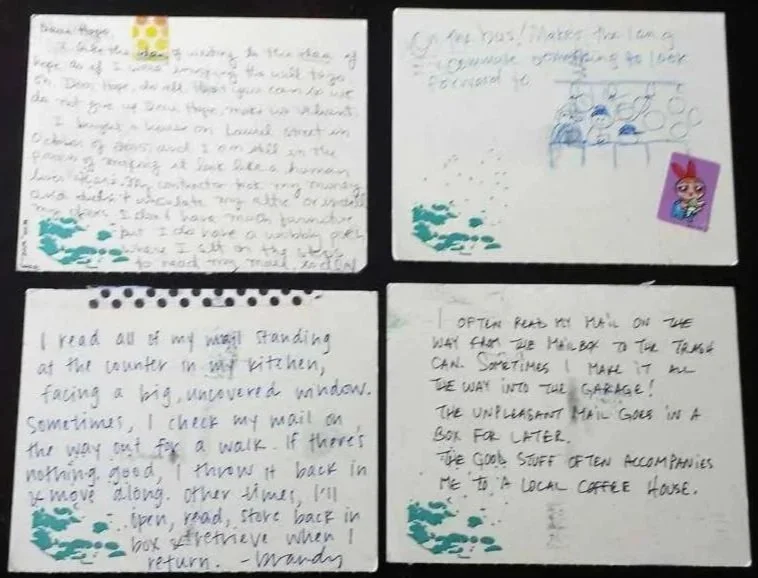 Dear Hope,
I like the idea of writing to the idea of
hope as if I were
on. Dear Hope, do all that you can so we
do not give up Dear Hope, make us vibrant.
I bought a house on Laurel street in
October of and I am still in the
process of making it look like a human
lives there. My contractor took my money
and didn't insulate my attic or install
my I don't have much furniture
but I do have a wobbly
where I sit on the steps
to read my mail
On the bus! Makes the long
commute something to look
forward to
I read all of my mail standing
at the counter in my kitchen,
facing a big, uncovered window.
Sometimes, I check my mail on
the way out for a walk. If there's
nothing good, I throw it back in
& move along. Other times, I'll
open, read, store back in
box & retrieve when I
return. - Brandy
I OFTEN READ MY MAIL ON THE
WAY FROM THE MAILBOX TO THE TRASH
CAN. SOMETIMES I MAKE IT ALL
THE WAY INTO THE GARAGE!
THE UNPLEASANT MAIL GOES IN A
BOX FOR LATER.
THE GOOD STUFF OFTEN ACCOMPANIES
ME TO A LOCAL COFFEE HOUSE.